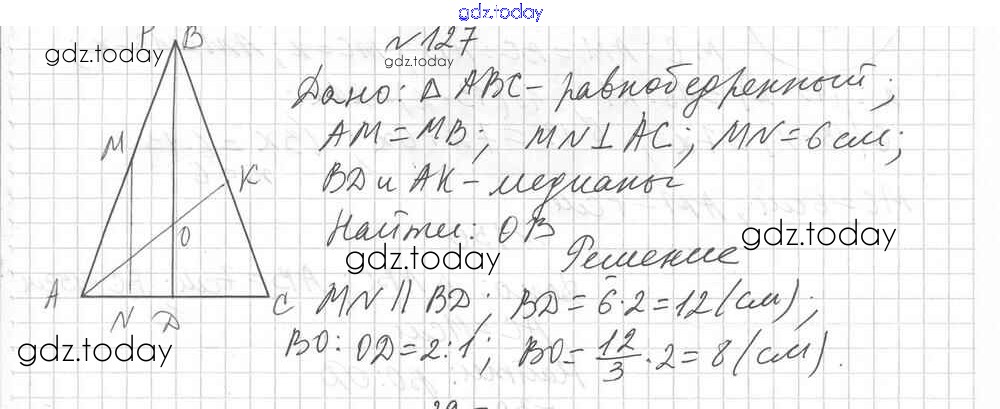 gdz.today
№127
P B
gdz.today
gdz.today
Дано: Δ ABC - равнобедренный;
AM = MB; MN ⊥ AC; MN = 6 см;
M
BD и AK - медианы
K
Найти: OB
O
gdz.today
gdz.today
Решение
A
C
MN || BD; BD = 6·2 = 12 (см);
N D
BO : OD = 2:1; BO = 12/3 · 2 = 8 (см).
gdz.today